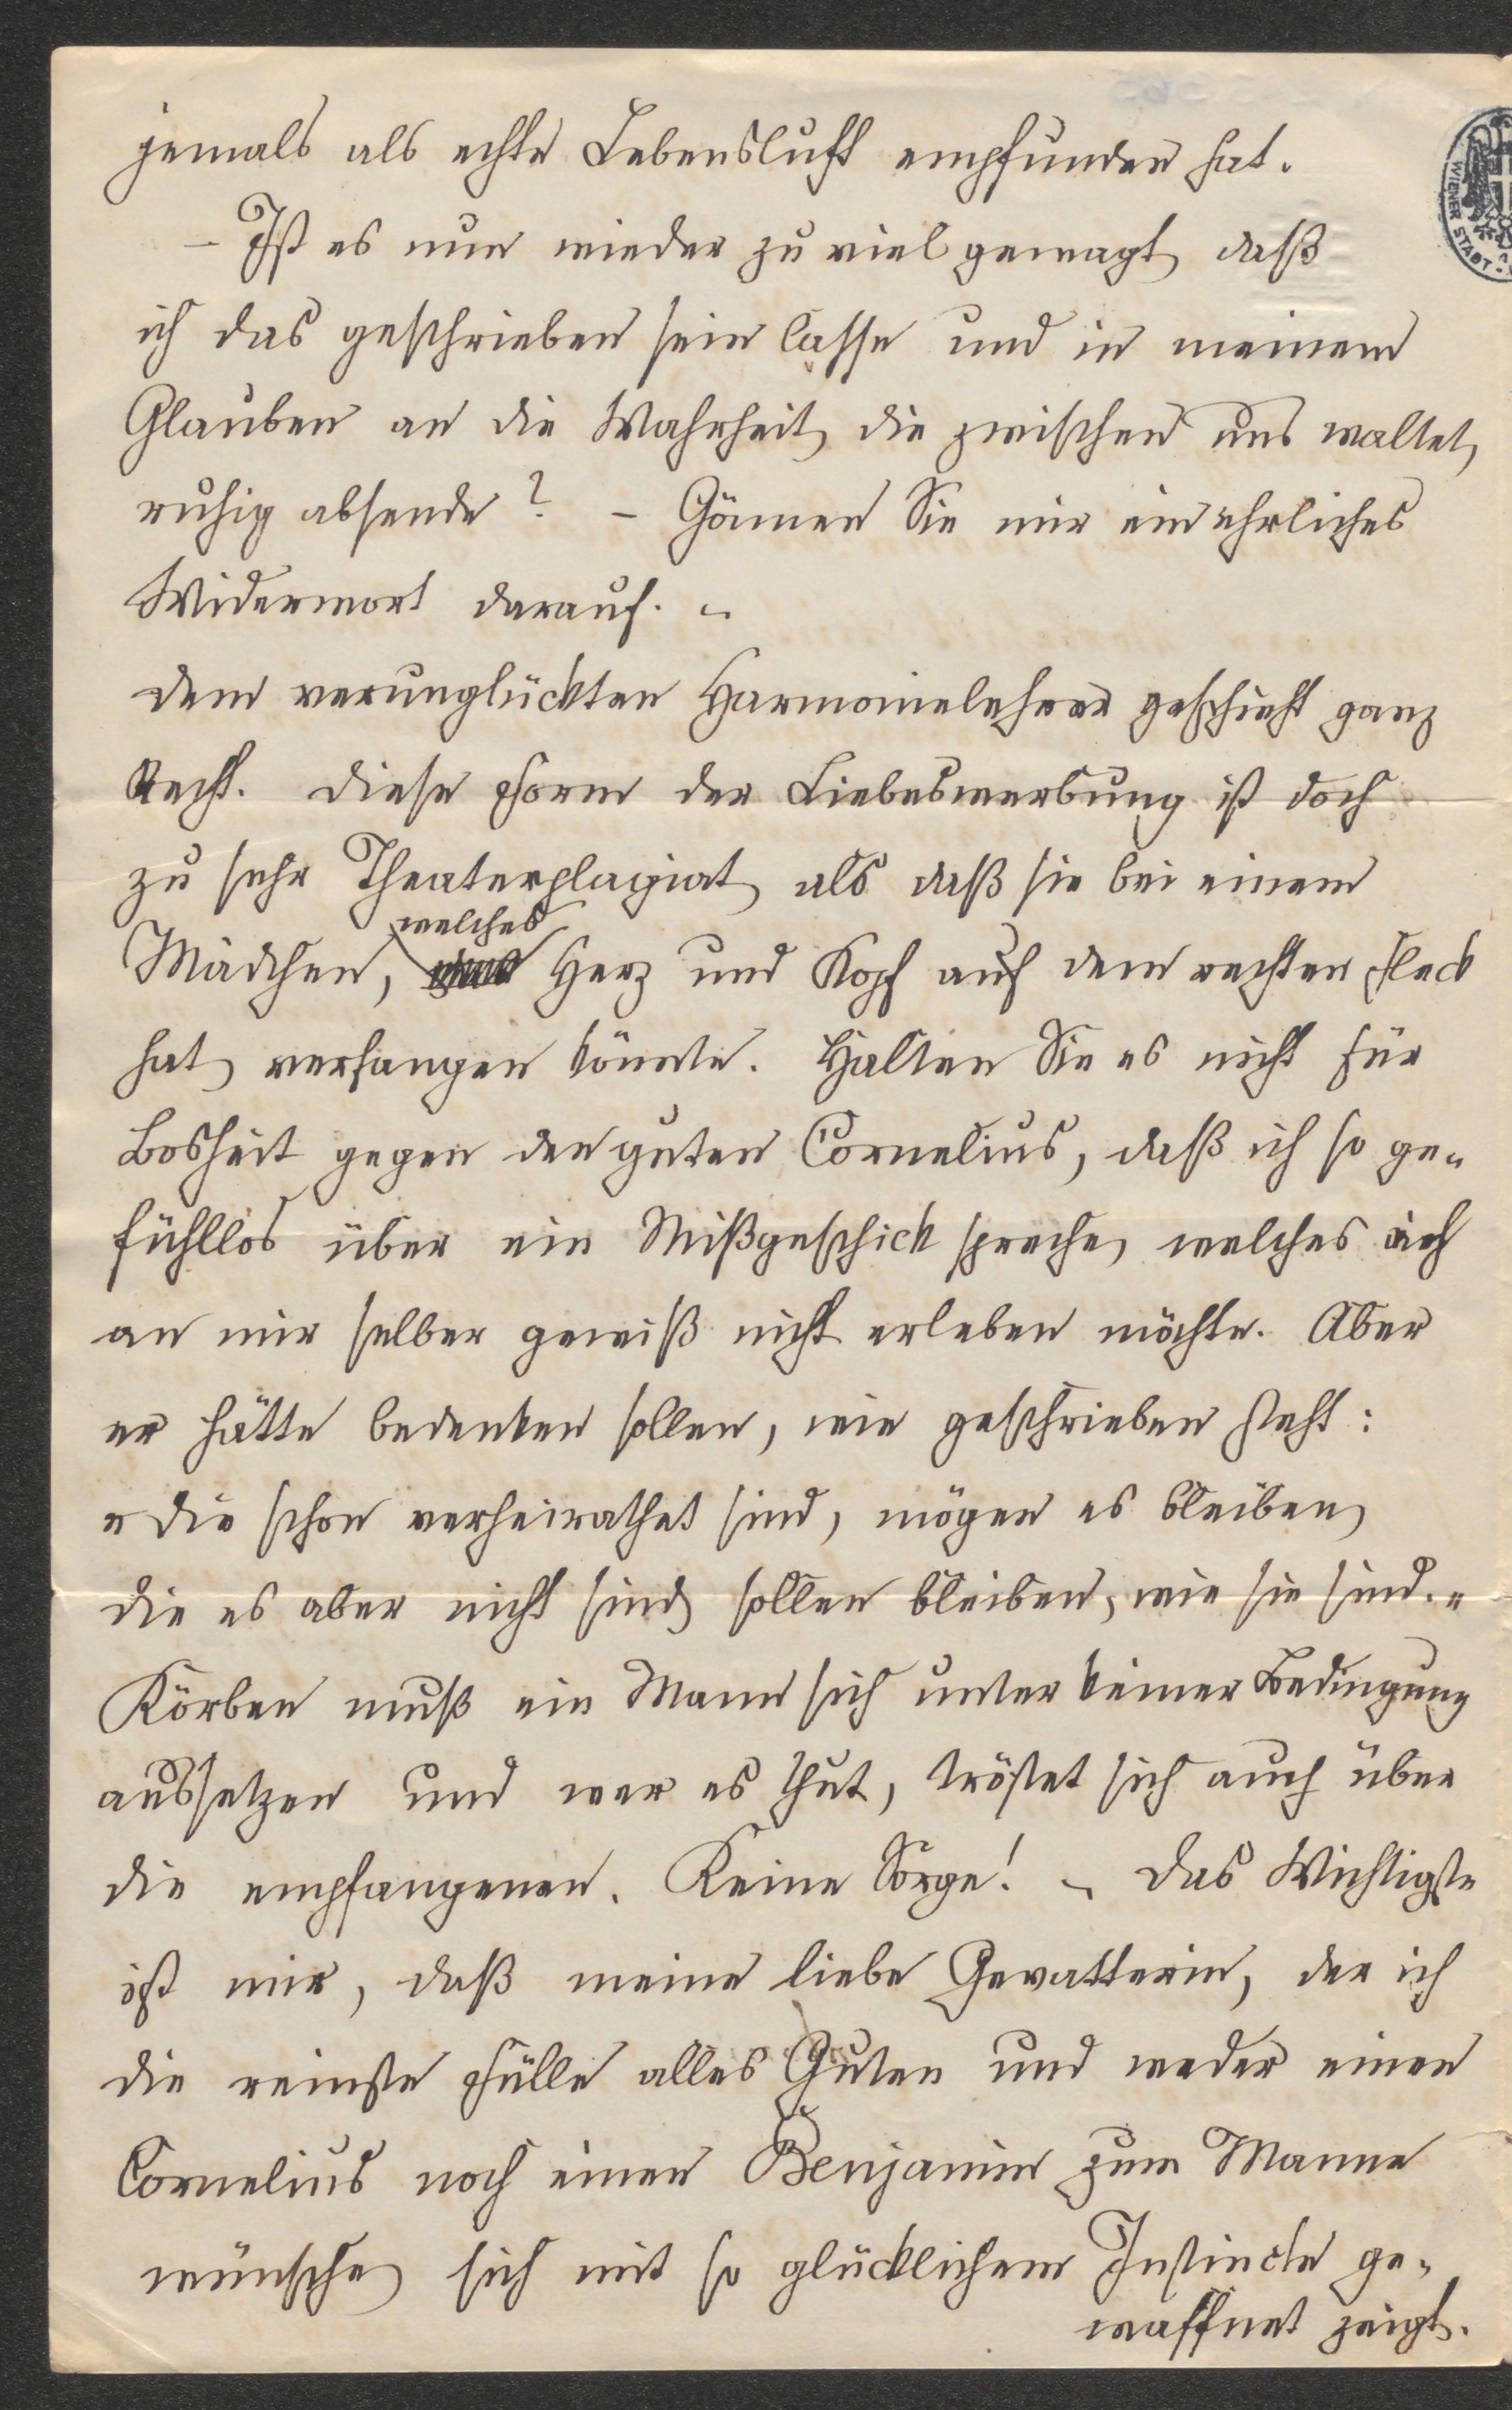 jemals als echte Lebensluft empfunden hat.
– Ist es nun wieder zu viel gewagt, daß
ich das geschrieben sein lasse und in meinem
Glauben an die Wahrheit, die zwischen uns waltet,
ruhig absende? – Gönnen Sie mir ein ehrliches
Widerwort darauf. –
Dem verunglückten Harmonielehrer geschieht ganz
Recht. Diese Form der Liebeswerbung ist doch
zu sehr Theaterplagiat, als daß sie bei einem
welches
Mädchen, Herz und Kopf auf dem rechten Fleck
hat, verfangen könnte. Halten Sie es nicht für
Bosheit gegen den guten Cornelius, daß ich so ge„
fühllos über ein Mißgeschick spreche, welches ich
an mir selber gewiß nicht erleben möchte. Aber
er hätte bedenken sollen, wie geschrieben steht:
„Die schon verheirathet sind, mögen es bleiben,
die es aber nicht sind, sollen bleiben, wie sie sind.„
Körben muß ein Mann sich unter keiner Bedingung
aussetzen und wer es thut, tröstet sich auch über
die empfangenen. Keine Sorge! – Das Wichtigste
ist mir, daß meine liebe Gevatterin, der ich
die reinste Fülle alles Guten und weder einen
Cornelius noch einen Benjamin zum Manne
wünsche, sich mit so glücklichem Instincte ge„
waffnet zeigt.
WIENER STADT-